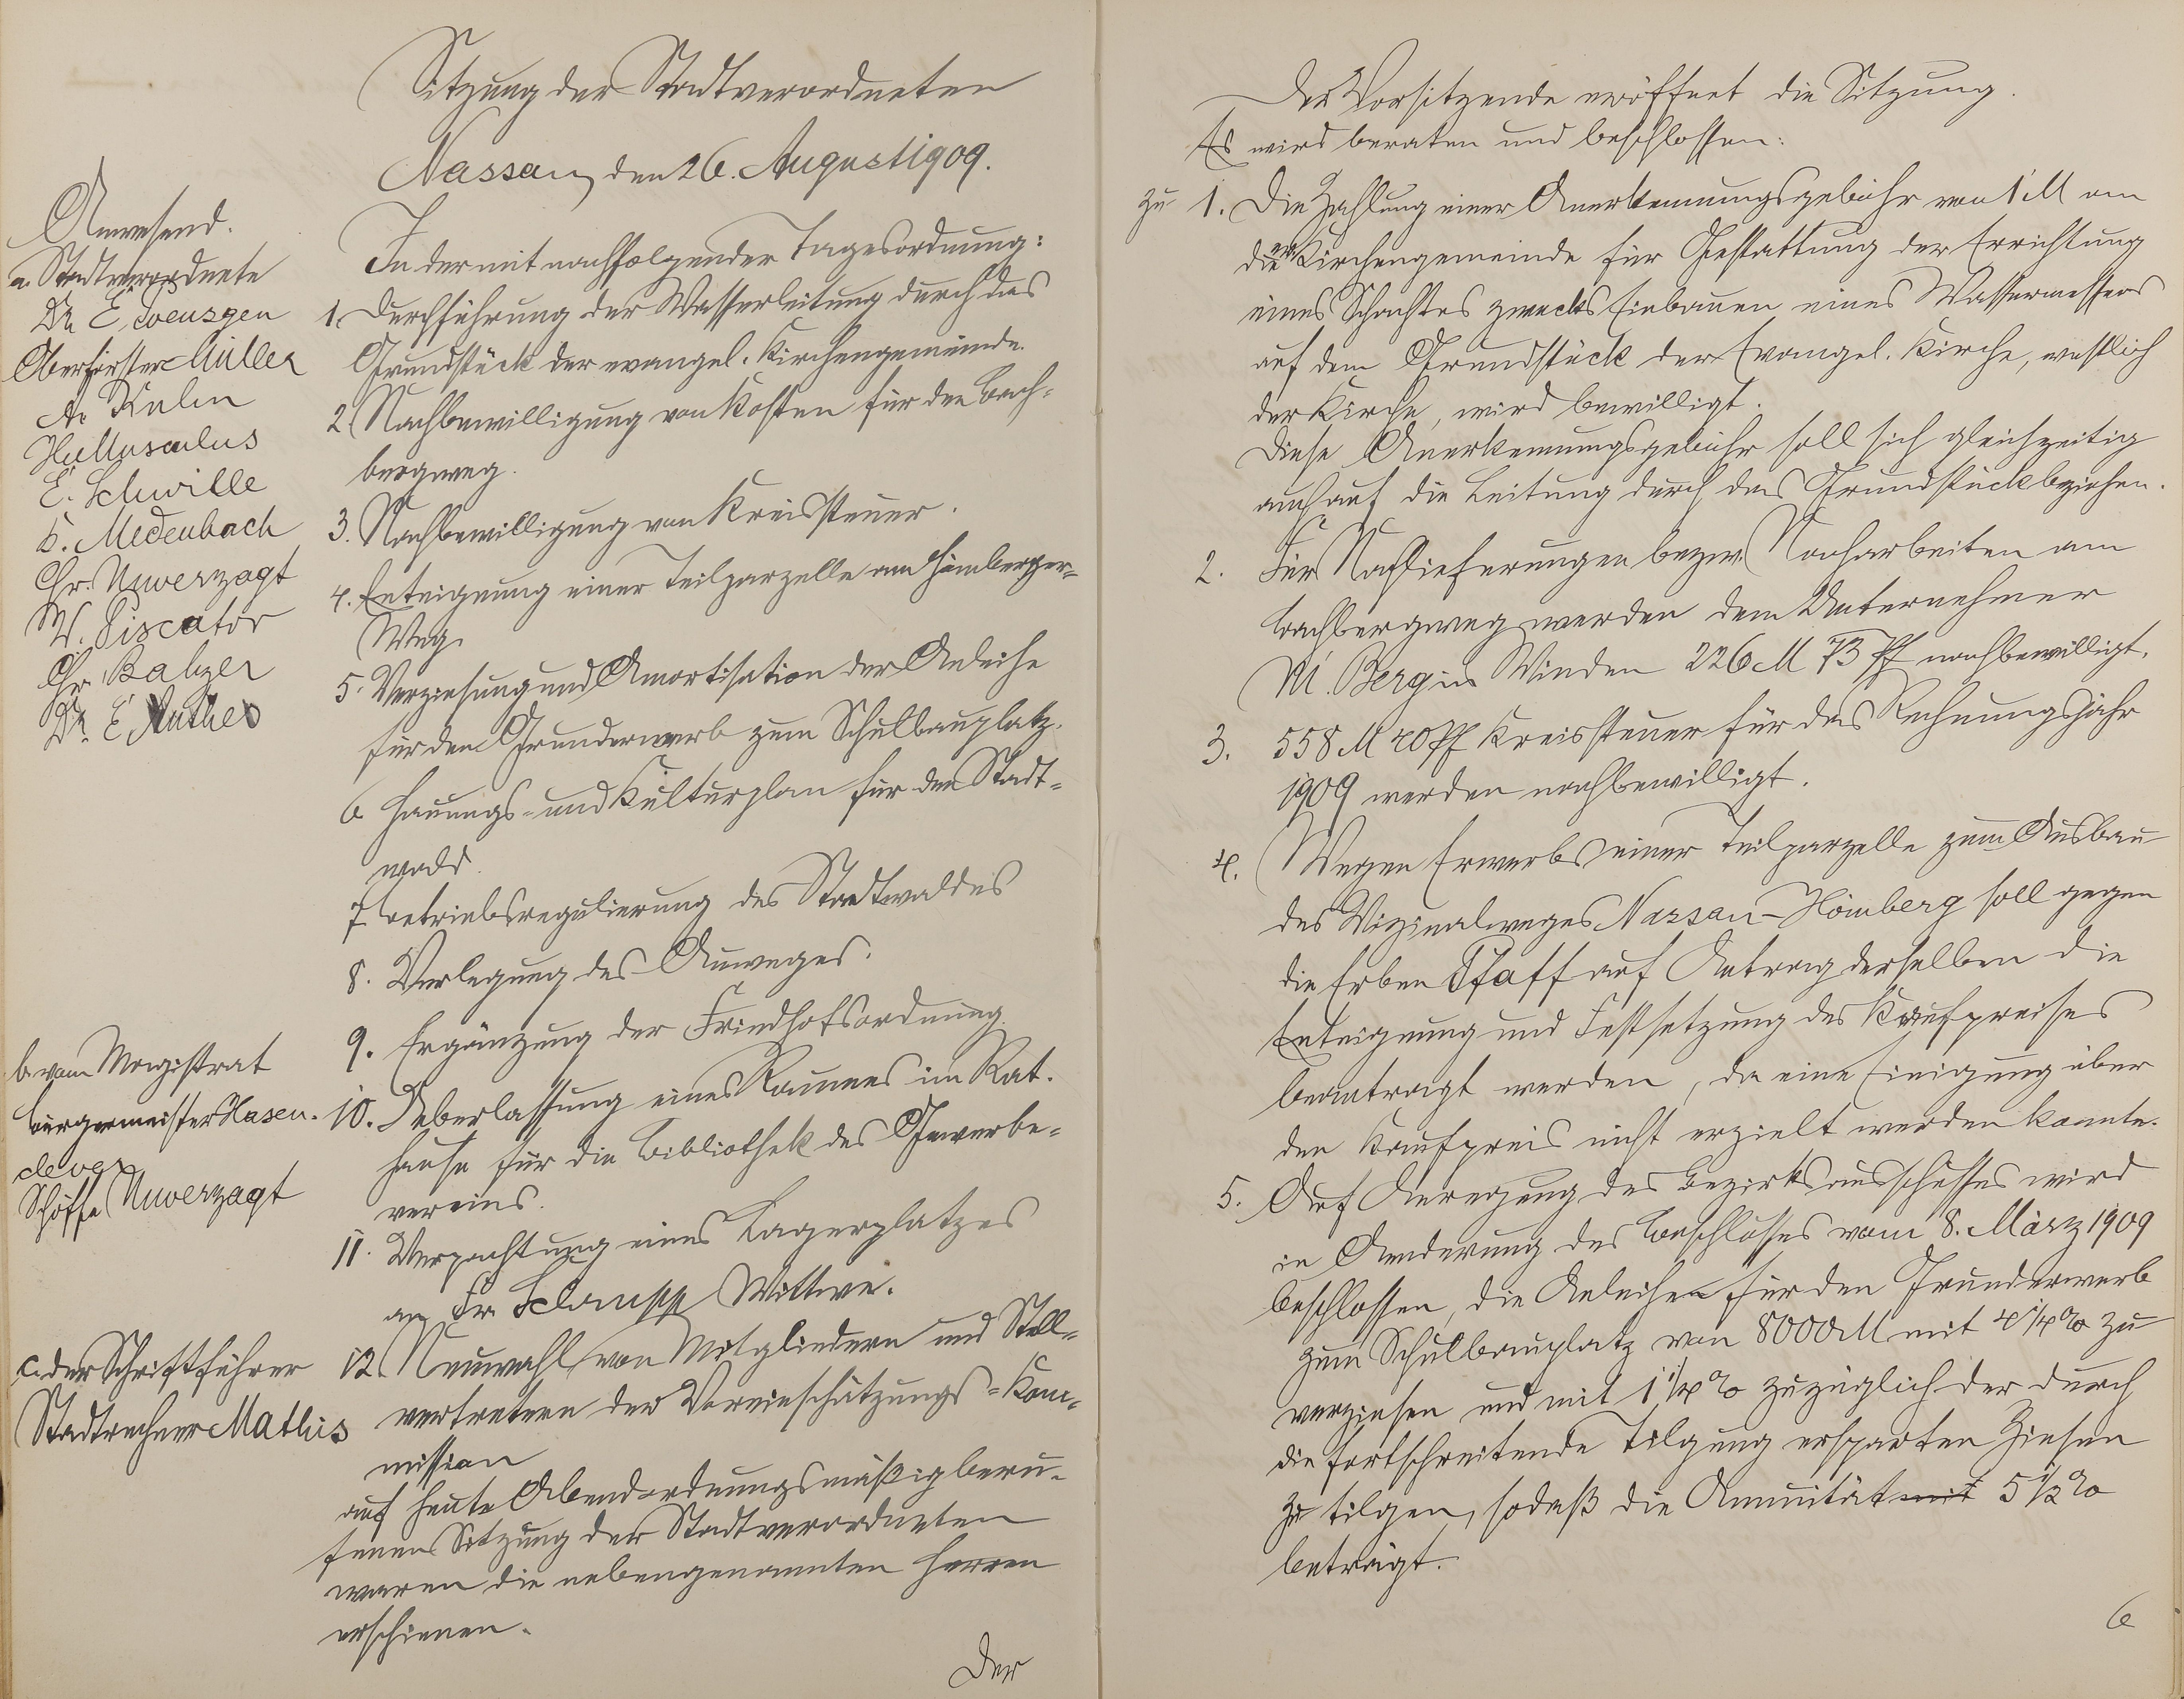 Sitzung der Stadtverordneten
Nassau, den 26. August 1909.
Anwesend.
a. Stadtverordnete
Dr. E.
Oberförster Müller
A. Kuhn
H. Musculus
E. Schwille
K. Medenbach
Chr. Unverzagt
W. Piscator
Chr. Balzer
Dr. E. Anthes
b. vom Magistrat
Bürgermeister Hasen-
clever
Schöffe Unverzagt
c. der Schriftführer
Stadtrechner Mathis
In der mit nachfolgender Tagesordnung:
1. Durchführung der Wasserleitung durch das
Grundstück der evangel. Kirchengemeinde.
2. Nachbewilligung von Kosten für den Bach-
bergweg.
3. Nachbewilligung von Kreissteuer.
4. Enteignung einer Teilparzelle am Hömberger-
Weg.
5. Verzinsung und Amortisation der Anleihe
für den Grunderwerb zum Schulbauplatz.
6 Hauungs- und Kulturplan für den Stadt-
wald.
7 Betriebsregulierung des Stadtwaldes
8. Verlegung des Auweges.
9. Ergänzung der Friedhofsordnung.
10. Ueberlassung eines Raumes im Rat-
hause für die Bibliothek des Gewerbe-
vereins.
11. Verpachtung eines Lagerplatzes
an Fr. Schrupp Wittwe.
12. Neuwahl von Mitgliedern und Stell-
vertretern der Voreinschätzungs-Kom-
mission
auf heute Abend ordnungsmäßig beru-
fenen Sitzung der Stadtverordneten
waren die nebengenannten Herren
erschienen.
Der
Der Vorsitzende eröffnet die Sitzung.
Es wird beraten und beschlossen:
zu 1. Die Zahlung einer Anerkennungsgebühr von 1 M an
die ev. Kirchengemeinde für Gestattung der Errichtung
eines Schachtes zwecks Einbauen eines Wassermessers
auf dem Grundstück der Evangel. Kirche, westlich
der Kirche, wird bewilligt.
Diese Anerkennungsgebühr soll sich gleichzeitig
auch auf die Leitung durch das Grundstück beziehen.
2. Für Nachlieferungen bezw. Nacharbeiten am
Bachbergweg werden dem Unternehmer
M. Berg in Winden 226 M 73 Pf nachbewilligt.
3. 558 M 20 Pf Kreissteuer für das Rechnungsjahr
1909 werden nachbewilligt.
4. Wegen Erwerbs einer Teilparzelle zum Ausbau
des Vizinalweges Nassau-Hömberg soll gegen
die Erben Pfaff auf Antrag derselben die
Enteignung und Festsetzung des Kaufpreises
beantragt werden, da eine Einigung über
den Kaufpreis nicht erzielt werden konnte.
5. Auf Anregung des Bezirksausschusses wird
in Aenderung des Beschlusses vom 8. März 1909
beschlossen, die Anleihen für den Grunderwerb
zum Schulbauplatz von 8000 M mit 4 1/4 % zu
verzinsen und mit 1 1/4 % zuzüglich der durch
die fortschreitende Tilgung ersparten Zinsen
zu tilgen, sodaß die Annuität mit 5 1/2 %
beträgt.
6